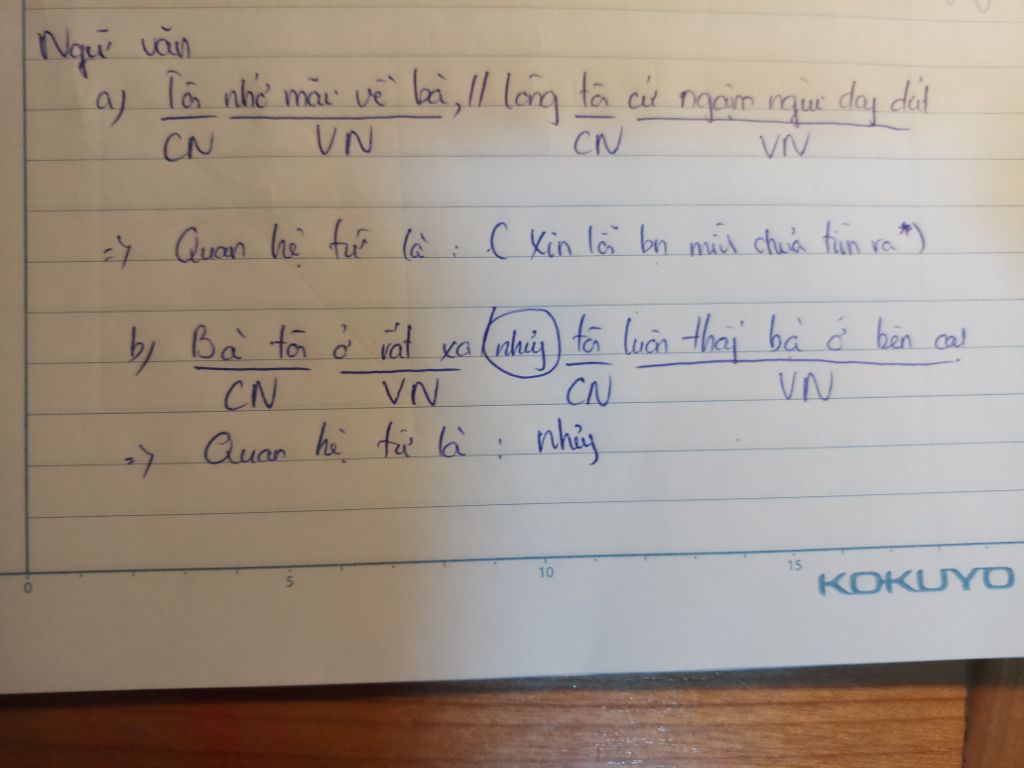 Ngữ văn
a) Tôi nhớ mãi về bà, // lòng tôi cứ ngậm ngùi day dứt
CN VN CN VN
=> Quan hệ từ là : ( Xin lỗi bn mình chưa tìm ra*)
b) Bà tôi ở rất xa nhưng tôi luôn thấy bà ở bên cạ
CN VN CN VN
=> Quan hệ từ là : nhưng
0 5 10 15 KOKUYO